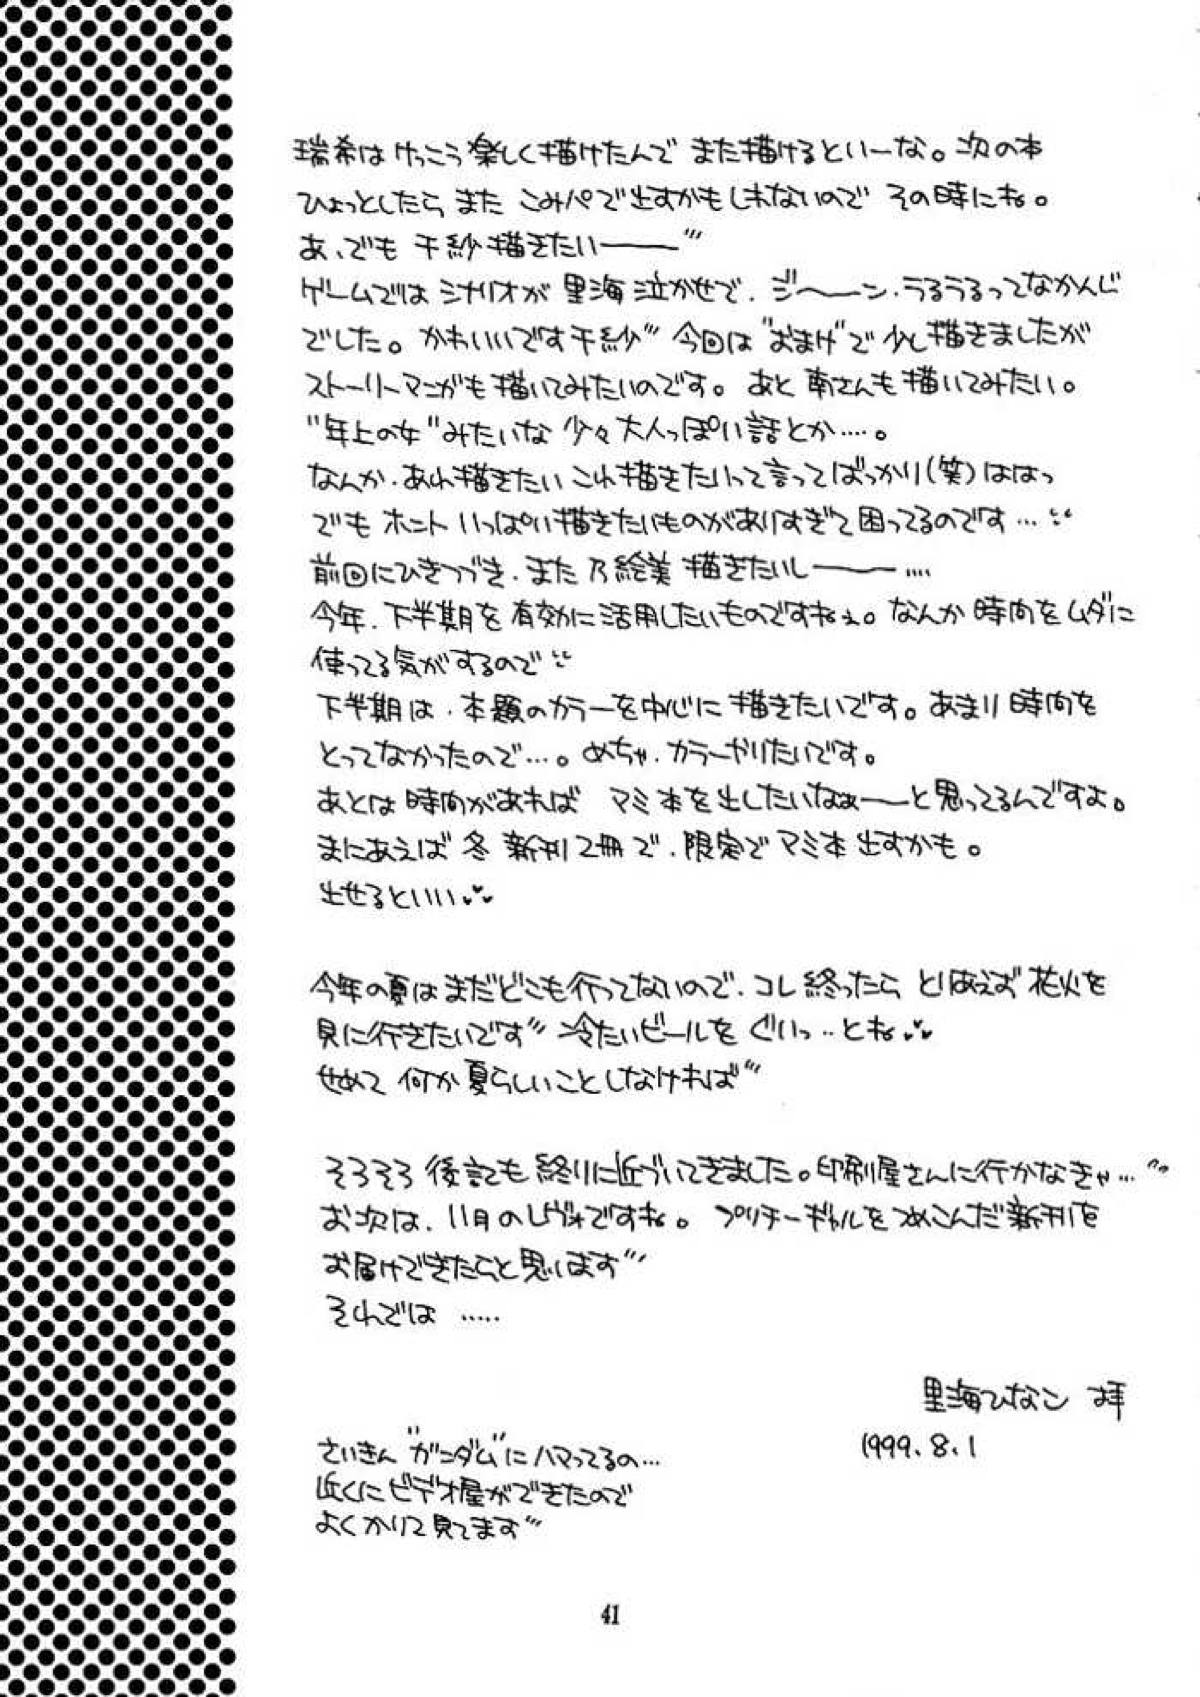 瑞希はけっこう楽しく描けたんで また描けるといーな。次の本
ひょっとしたら また こみパで出すかもしれないので その時にね。
あ、でも 千紗描きたいーーー"
ゲームでは シナリオが 里海泣かせで、ジ〜〜ン、うるうるってなかんじ
でした。かわいいです千紗" 今回は"おまけ"で少し描きましたが
ストーリーマンガも描いてみたいのです。あと 南さんも描いてみたい。
"年上の女"みたいな 少々大人っぽい話とか‥‥。
なんか、あれ描きたい これ描きたいって言ってばっかり(笑)ははっ
でも ホント いっぱい描きたいものがありすぎて困ってるのです…
前回にひきつづき、また 乃絵美 描きたいしーーー‥‥
今年、下半期を 有効に活用したいものですねぇ。なんか 時間をムダに
使ってる気がするので
下半期は、本題のカラーを中心に描きたいです。あまり 時間を
とってなかったので…。めちゃ、カラーやりたいです。
あとは 時間があれば マミ本を出したいなぁーーと思ってるんですよ。
まにあえば 冬 新刊2冊で、限定でマミ本出すかも。
出せるといい♥♥
今年の夏はまだどこも行ってないので、コレ終ったら とりあえず 花火を
見に行きたいです" 冷たいビールを ぐいっ‥とね♥♥
せめて 何か夏らしいことしなければ"
そろそろ 後記も 終りに近づいてきました。印刷屋さんに行かなきゃ…"
お次は、11月のレヴォですね。 プリチーギャルを つめこんだ新刊を
お届けできたらと思います"
それでは ‥‥‥
里海ひなこ 拝
1999.8.1
さいきん"ガンダム"にハマってるの…
近くにビデオ屋ができたので
よくかりて見てます"
41